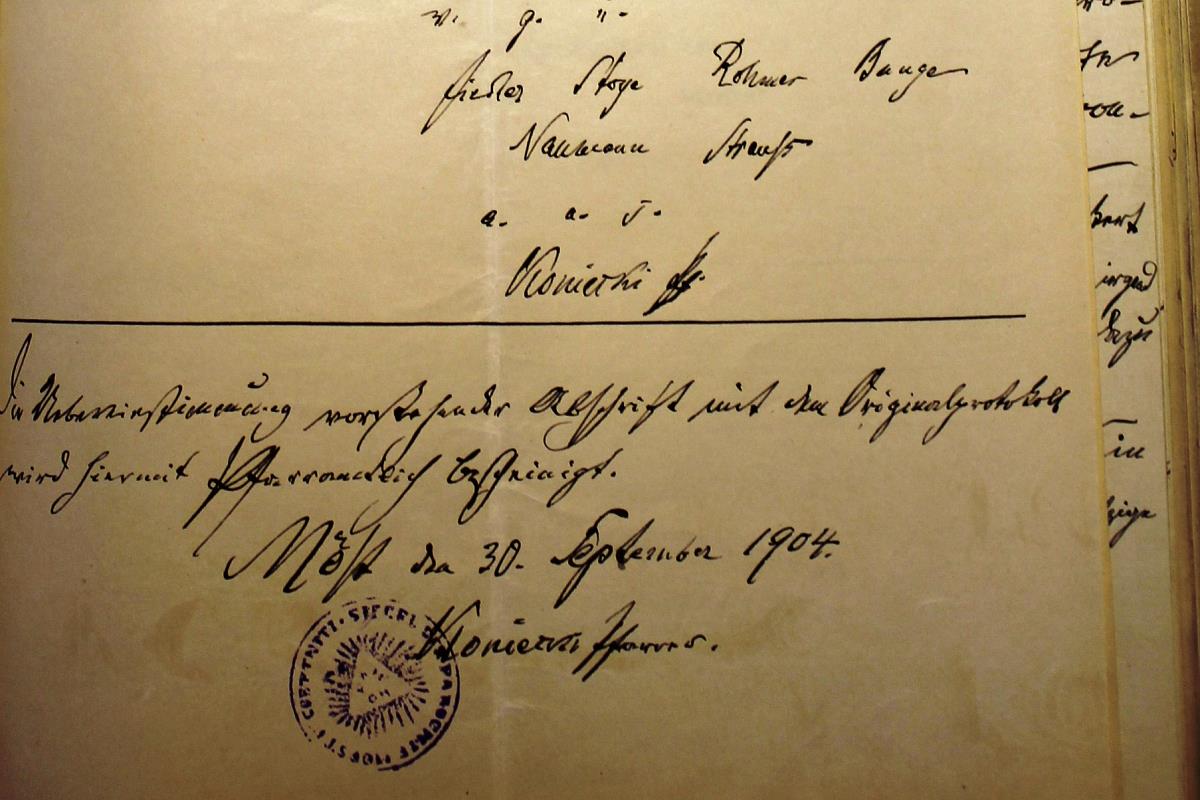 v. g. u.
Fiedler Stoye Rohmer Bunge
Naumann Strauß
a. u. s.
Konietzki Pf.
Die Uebereinstimmung vorstehender Abschrift mit dem Originalprotokoll
wird hiermit pfarramtlich bescheinigt.
Möst den 30. September 1904.
Konietzki Pfarrer.
SIEGEL PAROCHIE MOEST
irgend
dazu
in